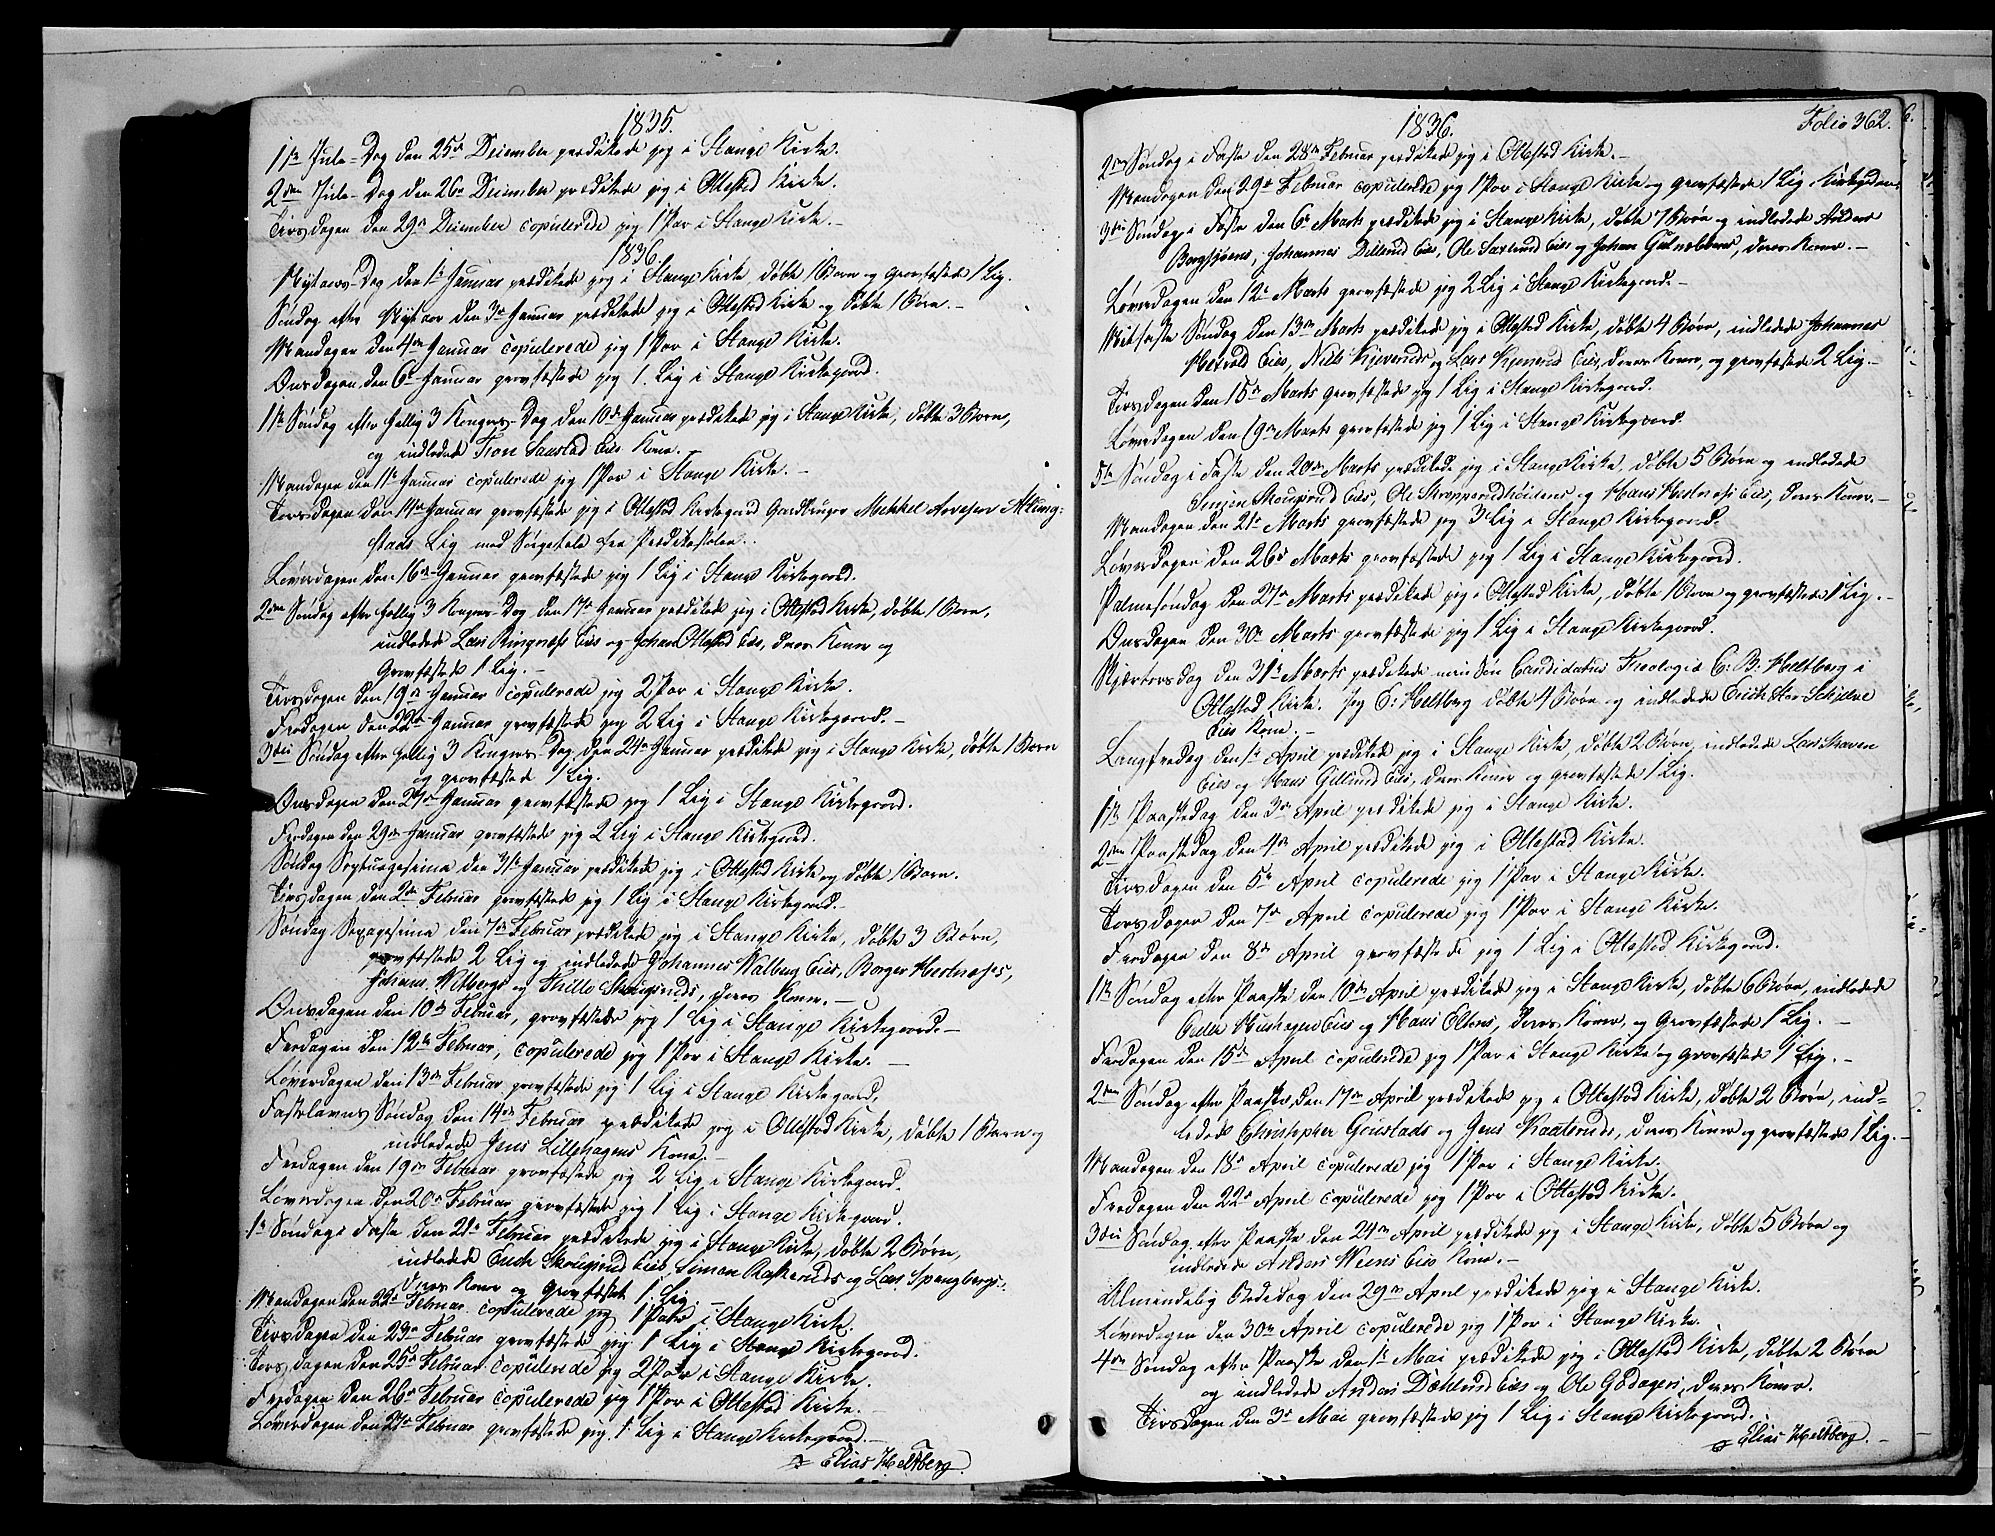 1835.
1ste Jule-Dag den 25de December prædikede jeg i Stange Kirke.
2den Jule-Dag den 26de December prædikede jeg i Ottestad Kirke.
Tirsdagen den 29de December copulerede jeg 1 Par i Stange Kirke.
1836.
Nytaars-Dag den 1ste Januar prædikede jeg i Stange Kirke, døbte 1 Barn og gravfæstede 1 Lig.
Søndag efter Nytaar den 3die Januar prædikede jeg i Ottestad Kirke og døbte 1 Barn.
Mandagen den 4de Januar copulerede jeg 1 Par i Stange Kirke.
Onsdagen den 6te Januar gravfæstede jeg 1 Lig i Stange Kirkegaard.
1ste Søndag efter Hellig 3 Kongers-Dag den 10de Januar prædikede jeg i Stange Kirke, døbte 3 Børn,
og indledede Eies Kone.
Mandagen den 11te Januar copulerede jeg 1 Par i Stange Kirke.
Torsdagen den 14de Januar gravfæstede jeg i Ottestad Kirkegaard Gaardbruger Mikkel Arnesen
stads Lig med Sørgetale fra Prædikestolen.
Løverdagen den 16de Januar gravfæstede jeg 1 Lig i Stange Kirkegaard.
2den Søndag efter Hellig 3 Kongers-Dag den 17de Januar prædikede jeg i Ottestad Kirke, døbte 1 Barn,
indledede Lars Ringnæs Eies og Johan Ottestad Eies, deres Koner og
Gravfæstede 1 Lig.
Tirsdagen den 19de Januar copulerede jeg 2 Par i Stange Kirke.
Fredagen den 22de Januar gravfæstede jeg 2 Lig i Stange Kirkegaard.
3die Søndag efter Hellig 3 Kongers-Dag den 24de Januar prædikede jeg i Stange Kirke, døbte 1 Barn
og gravfæstede 1 Lig.
Onsdagen den 27de Januar gravfæstede jeg 1 Lig i Stange Kirkegaard.
Fredagen den 29de Januar gravfæstede jeg 2 Lig i Stange Kirkegaard.
Søndag Septuagesima den 31te Januar prædikede jeg i Ottestad Kirke og døbte 1 Barn.
Tirsdagen den 2den Februar gravfæstede jeg 1 Lig i Stange Kirkegaard.
Søndag Sexagesima den 7de Februar prædikede jeg i Stange Kirke, døbte 3 Børn,
gravfæstede 2 Lig og indledede Johannes Valberg Eies, Borger Hestnæses,
Johans Vitbergs og deres Koner.
Onsdagen den 10de Februar, gravfæstede jeg 1 Lig i Stange Kirkegaard.
Fredagen den 12te Februar, copulerede jeg 1 Par i Stange Kirke.
Løverdagen den 13de Februar gravfæstede jeg 1 Lig i Stange Kirkegaard.
Fastelavns Søndag den 14de Februar prædikede jeg i Ottestad Kirke, døbte 1 Barn og
indledede Jens Lillehagens Kone.
Fredagen den 19de Februar gravfæstede jeg 2 Lig i Stange Kirkegaard.
Løverdagen den 20de Februar gravfæstede jeg 1 Lig i Stange Kirkegaard.
1ste Søndag i Faste den 21de Februar prædikede jeg i Stange Kirke, døbte 2 Børn,
indledede Skouprud Eies, Simon og Lars Spangbergs,
deres Koner og Gravfæstet 1 Lig.
Mandagen den 22de Februar copulerede jeg 1 Par i Stange Kirke.
Tirsdagen den 23de Februar gravfæstede jeg 1 Lig i Stange Kirkegaard.
Torsdagen den 25de Februar copulerede jeg 2 Par i Stange Kirke.
Fredagen den 26de Februar copulerede jeg 1 Par i Ottestad Kirke.
Løverdagen den 27de Februar gravfæstede jeg 1 Lig i Stange Kirkegaard.
Elias Heltberg.
1836.
Folio 362.
2den Søndag i Faste den 28de Februar prædikede jeg i Ottestad Kirke.
Mandagen den 29de Februar copulerede jeg 1 Par i Stange Kirke og gravfæstede 1 Lig
3die Søndag i Faste den 6te Marts prædikede jeg i Stange Kirke, døbte 7 Børn og indledede Anders
Bergsjøens, Johannes Dillerud Eies, Ole Saxlund Eies og Johan deres Koner.
Løverdagen den 12te Marts gravfæstede jeg 2 Lig i Stange Kirkegaard.
Midfaste Søndag den 13de Marts prædikede jeg i Ottestad Kirke, døbte 4 Børn, indledede Johannes
Eies, Niels og Lars Eies, deres Koner, og gravfæstede 2 Lig.
Tirsdagen den 15de Marts gravfæstede jeg 1 Lig i Stange Kirkegaard.
Løverdagen den 19de Marts gravfæstede jeg 1 Lig i Stange Kirkegaard.
5te Søndag i Faste den 20de Marts prædikede jeg i Stange Kirke, døbte 5 Børn og indledede
Skouprud Eies, Ole og Hans Hestnæs Eies, deres Koner.
Mandagen den 21de Marts gravfæstede jeg 3 Lig i Stange Kirkegaard.
Løverdagen den 26de Marts gravfæstede jeg 1 Lig i Stange Kirkegaard.
Palmesøndag den 27de Marts prædikede jeg i Ottestad Kirke, døbte 1 Barn og gravfæstede 1 Lig.
Onsdagen den 30te Marts gravfæstede jeg 1 Lig i Stange Kirkegaard.
Skjærtorsdag den 31te Marts prædikede min Søn Candidatus Theologiæ C: B: Heltberg i
Ottestad Kirke. Jeg E: Heltberg døbte 4 Børn og indledede Erik
Eies Kone.
Langfredag den 1ste April prædikede jeg i Stange Kirke, døbte 2 Børn, indledede Lars
Eies og Hans Gillund Eies, deres Koner og gravfæstede 1 Lig.
1ste Paaskedag den 3die April prædikede jeg i Stange Kirke.
2den Paaskedag den 4de April prædikede jeg i Ottestad Kirke.
Tirsdagen den 5te April copulerede jeg 1 Par i Stange Kirke.
Torsdagen den 7de April copulerede jeg 1 Par i Stange Kirke.
Fredagen den 8de April gravfæstede jeg 1 Lig i Ottestad Kirkegaard.
1ste Søndag efter Paaske den 10de April prædikede jeg i Stange Kirke, døbte 6 Børn, indledede
Eies og Hans deres Koner, og Gravfæstede 1 Lig.
Fredagen den 15de April copulerede jeg 1 Par i Stange Kirke og gravfæstede 1 Lig.
2den Søndag efter Paaske, den 17de April prædikede jeg i Ottestad Kirke, døbte 2 Børn, ind-
ledede Christopher Goustads og Jens Kaateruds, deres Koner og gravfæstede 1 Lig.
Mandagen den 18de April copulerede jeg 1 Par i Stange Kirke.
Fredagen den 22de April copulerede jeg 1 Par i Ottestad Kirke.
3die Søndag efter Paaske den 24de April prædikede jeg i Stange Kirke, døbte 5 Børn og
indledede Anders Eies Kone.
Almindelig Bededag den 29de April prædikede jeg i Stange Kirke.
Løverdagen den 30te April copulerede jeg 1 Par i Stange Kirke.
4de Søndag efter Paaske den 1ste Mai prædikede jeg i Ottestad Kirke, døbte 2 Børn
og indledede Anders Dæhlund Eies og Ole Godagers, deres Koner.
Tirsdagen den 3die Mai gravfæstede jeg 1 Lig i Stange Kirkegaard.
Elias Heltberg.